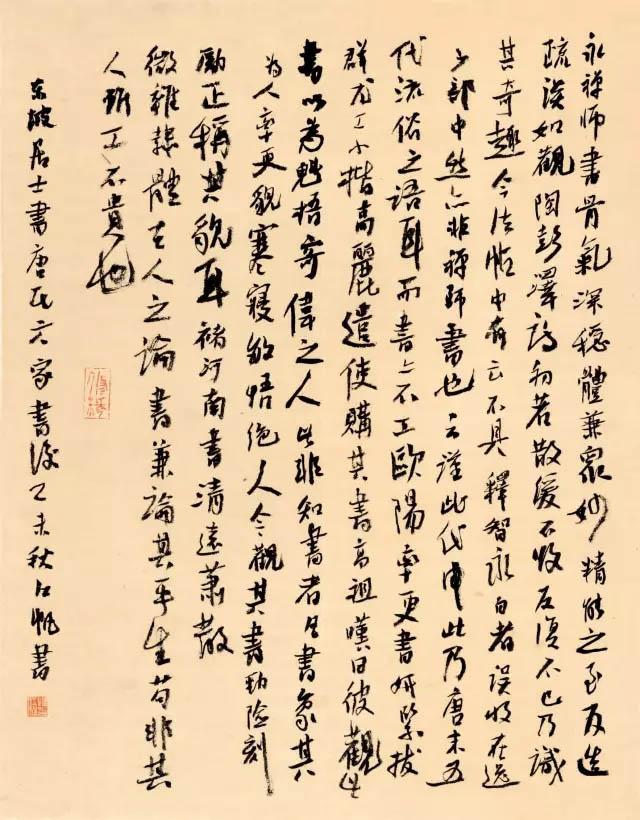 永禪師書骨氣深穩體兼眾妙精能之至反造
疏淡如觀陶彭澤詩初若散緩不收反復不已乃識
其奇趣今法帖中有云不具釋智永白者誤收在逸
少部中然亦非禪師書也云謹此代申此乃唐末五
代流俗之語耳而書亦不工歐陽率更書妍緊拔
群尤工小楷高麗遣使購其書高祖嘆曰彼觀其
書以為魁梧奇偉之人此非知書者凡書象其
為人率更貌寒寢敏悟絕人今觀其書勁險刻
勵正稱其貌耳褚河南書清遠蕭散
微雜隸體古人之論書兼論其平生苟非其
人雖工不貴也
東坡居士書唐氏六家書後乙未秋江帆書